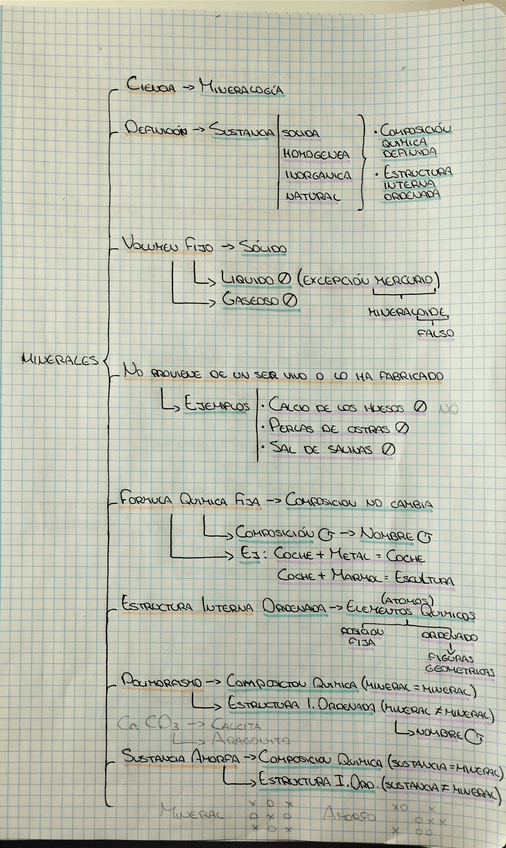 CIENCIA → MINERALOGÍA
DEFINICIÓN → SUSTANCIA | SOLIDA
HOMOGENEA
INORGANICA
NATURAL
· COMPOSICIÓN
QUIMICA
DEFINIDA
· ESTRUCTURA
INTERNA
ORDENADA
VOLUMEN FIJO → SÓLIDO
→ LIQUIDO ∅ (EXCEPCIÓN MERCURIO)
→ GASEOSO ∅
MINERALOIDE
FALSO
MINERALES
NO PROVIENE DE UN SER VIVO O LO HA FABRICADO
→ EJEMPLOS | · CALCIO DE LOS HUESOS ∅ NO
· PERLAS DE OSTRAS ∅
· SAL DE SALINAS ∅
FORMULA QUIMICA FIJA → COMPOSICION NO CAMBIA
→ COMPOSICIÓN → NOMBRE
→ EJ: COCHE + METAL = COCHE
COCHE + MARMOL = ESCULTURA
(ATOMOS)
ESTRUCTURA INTERNA ORDENADA → ELEMENTOS QUIMICOS
POSICION
FIJA
ORDENADO
FIGURAS
GEOMETRICAS
POLIMORFISMO → COMPOSICION QUIMICA (MINERAL = MINERAL)
→ ESTRUCTURA I. ORDENADA (MINERAL ≠ MINERAL)
→ NOMBRE
Ca CO3 → CALCITA
→ ARAGONITO
SUSTANCIA AMORFA → COMPOSICION QUIMICA (SUSTANCIA = MINERAL)
→ ESTRUCTURA I. ORD. (SUSTANCIA ≠ MINERAL)
MINERAL x o x AMORFO xo x
o x o o x x
x o x x oo